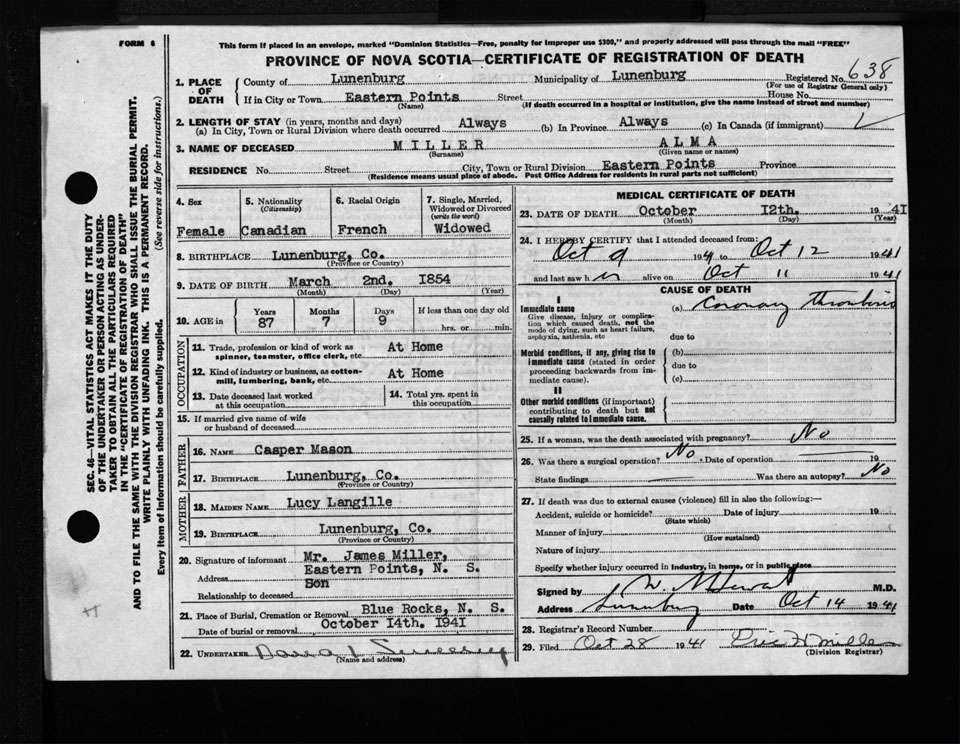 FORM 6
This form if placed in an envelope, marked "Dominion Statistics—Free, penalty for improper use $300," and properly addressed will pass through the mail "FREE"
PROVINCE OF NOVA SCOTIA—CERTIFICATE OF REGISTRATION OF DEATH
SEC. 46—VITAL STATISTICS ACT MAKES IT THE DUTY
OF THE UNDERTAKER OR PERSON ACTING AS UNDER-
TAKER TO OBTAIN ALL THE PARTICULARS REQUIRED
IN THE "CERTIFICATE OF REGISTRATION OF DEATH"
AND TO FILE THE SAME WITH THE DIVISION REGISTRAR WHO SHALL ISSUE THE BURIAL PERMIT.
WRITE PLAINLY WITH UNFADING INK. THIS IS A PERMANENT RECORD.
Every item of Information should be carefully supplied. (See reverse side for instructions.)
1. PLACE OF DEATH
County of Lunenburg Municipality of Lunenburg Registered No. 638
(For use of Registrar General only)
If in City or Town Eastern Points Street House No.
(Name) (If death occurred in a hospital or institution, give the name instead of street and number)
2. LENGTH OF STAY (in years, months and days)
(a) In City, Town or Rural Division where death occurred Always (b) In Province Always (c) In Canada (if immigrant)
3. NAME OF DECEASED MILLER ALMA
(Surname) (Given name or names)
RESIDENCE No. Street City, Town or Rural Division Eastern Points Province
(Residence means usual place of abode. Post Office Address for residents in rural parts not sufficient)
4. Sex Female
5. Nationality (Citizenship) Canadian
6. Racial Origin French
7. Single, Married, Widowed or Divorced (write the word) Widowed
8. BIRTHPLACE Lunenburg, Co.
(Province or Country)
9. DATE OF BIRTH March 2nd. 1854
(Month) (Day) (Year)
10. AGE in Years Months Days If less than one day old
87 7 9 hrs. or min.
OCCUPATION
11. Trade, profession or kind of work as spinner, teamster, office clerk, etc. At Home
12. Kind of industry or business, as cotton-mill, lumbering, bank, etc. At Home
13. Date deceased last worked at this occupation
14. Total yrs. spent in this occupation
15. If married give name of wife or husband of deceased
FATHER
16. NAME Casper Mason
17. BIRTHPLACE Lunenburg, Co.
(Province or Country)
MOTHER
18. MAIDEN NAME Lucy Langille
19. BIRTHPLACE Lunenburg, Co.
(Province or Country)
20. Signature of informant Mr. James Miller,
Address Eastern Points, N. S.
Relationship to deceased Son
21. Place of Burial, Cremation or Removal Blue Rocks, N. S.
Date of burial or removal October 14th. 1941
22. UNDERTAKER
(Name and address)
MEDICAL CERTIFICATE OF DEATH
23. DATE OF DEATH October 12th. 1941
(Month) (Day) (Year)
24. I HEREBY CERTIFY that I attended deceased from:
Oct 9 1941 to Oct 12 1941
and last saw h alive on Oct 11 1941
CAUSE OF DEATH
I
Immediate cause
Give disease, injury or complication which caused death, not the mode of dying, such as heart failure, asphyxia, asthenia, etc
(a) Coronary thrombosis
due to
Morbid conditions, if any, giving rise to immediate cause (stated in order proceeding backwards from immediate cause).
(b)
due to
(c)
II
Other morbid conditions (if important) contributing to death but not causally related to immediate cause.
25. If a woman, was the death associated with pregnancy? No
26. Was there a surgical operation? No. Date of operation 19
State findings Was there an autopsy? No
27. If death was due to external causes (violence) fill in also the following:—
Accident, suicide or homicide? Date of injury 19
(State which)
Manner of injury
(How sustained)
Nature of injury
Specify whether injury occurred in industry, in home, or in public place
Signed by M.D.
Address Lunenburg Date Oct 14 1941
28. Registrar's Record Number
29. Filed Oct 28 1941 Eric H Miller
(Division Registrar)